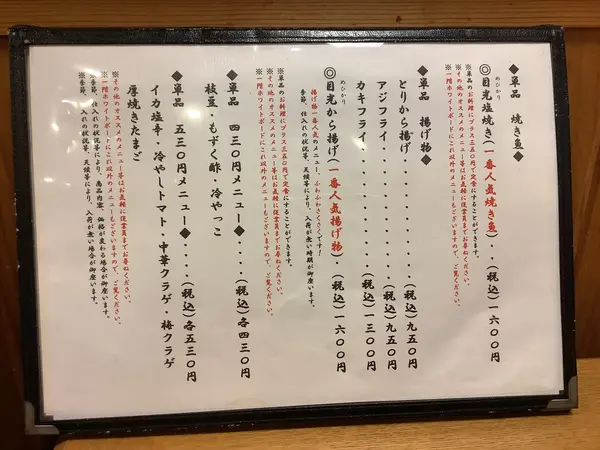 ◆単品 焼き魚◆
めひかり
◎目光塩焼き(一番人気焼き魚)・・(税込)一六〇〇円
※単品のお料理にプラス三五〇円で定食にすることができます。
※その他のオススメのメニュー等はお気軽に従業員までお尋ねください。
※一階ホワイトボードにこれ以外のメニューもございますので、ご覧ください。
◆単品 揚げ物◆
とりから揚げ・・・・・・・・・・(税込)九五〇円
アジフライ・・・・・・・・・・・(税込)九五〇円
カキフライ・・・・・・・・・・・(税込)一三〇〇円
めひかり
◎目光から揚げ(一番人気揚げ物)・(税込)一六〇〇円
揚げ物一番人気のメニュー、ふわふわさくさくです!
季節、仕入れの状況等、天候等により、入荷が無い時期が御座います。
※単品のお料理にプラス三五〇円で定食にすることができます。
※その他のオススメのメニュー等はお気軽に従業員までお尋ねください。
※一階ホワイトボードにこれ以外のメニューもございますので、ご覧ください。
◆単品 四三〇円メニュー◆・・・・(税込)各四三〇円
枝豆・もずく酢・冷やっこ
◆単品 五三〇円メニュー◆・・・・(税込)各五三〇円
イカ塩辛・冷やしトマト・中華クラゲ・梅クラゲ
厚焼きたまご
※その他のオススメのメニュー等はお気軽に従業員までお尋ねください。
※一階ホワイトボードにこれ以外のメニューもございますので、ご覧ください。
※季節、仕入れの状況等により、商品内容、価格が変わる場合が御座います。
※季節、仕入れの状況等、天候等により、入荷が無い場合が御座います。